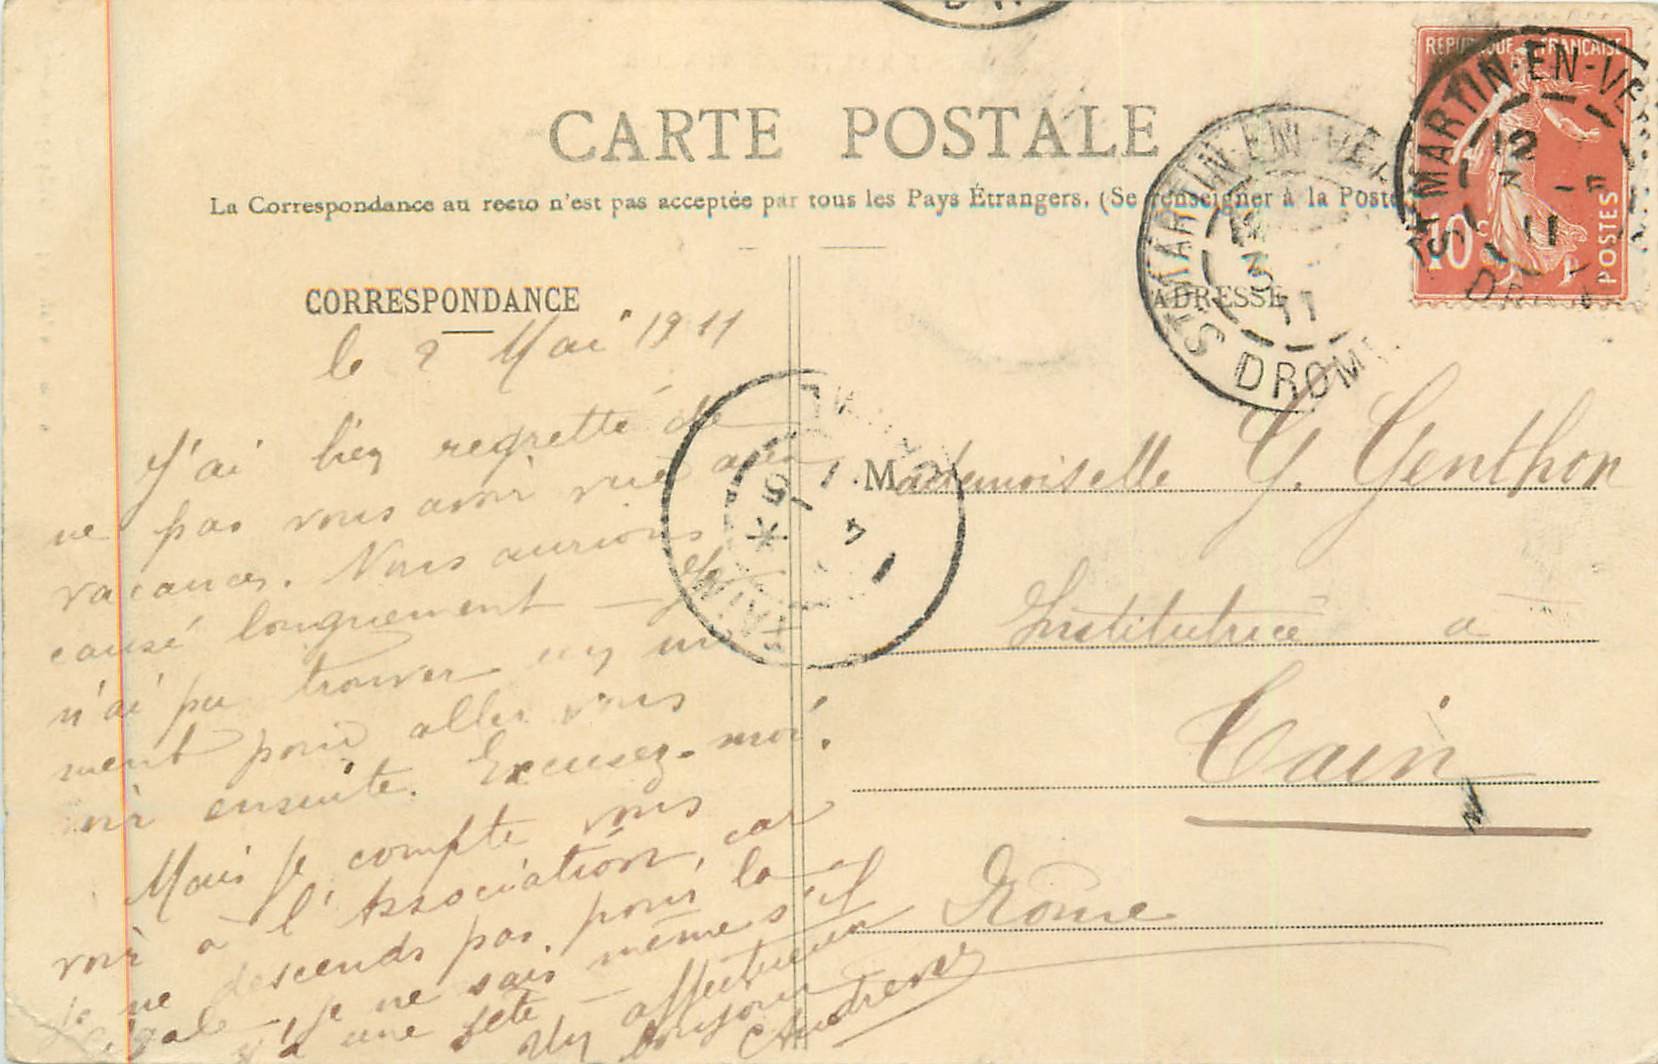 CARTE POSTALE
La Correspondance au recto n'est pas acceptée par tous les Pays Étrangers. (Se renseigner à la Poste
CORRESPONDANCE
le 2 Mai 1911
J'ai bien regretté de
ne pas vous avoir vue aux
vacances. Nous aurions
causé longuement - Je
n'ai pu trouver un mo
ment pour aller vous
voir ensuite. Excusez-moi.
Mais je compte vous
voir à l'Association, car
je ne descends pas pour la
Cigale - je ne sais même s'il
y a une fête - Un affectueux
bonjour
ADRESSE
Mademoiselle G. Genthon
Institutrice à
Tain
Drôme
REPUBLIQUE FRANÇAISE
10c
POSTES
ST MARTIN-EN-VE
12
3
11
DROME
ST MARTIN-EN-VE
12
3
11
DRO
TAIN